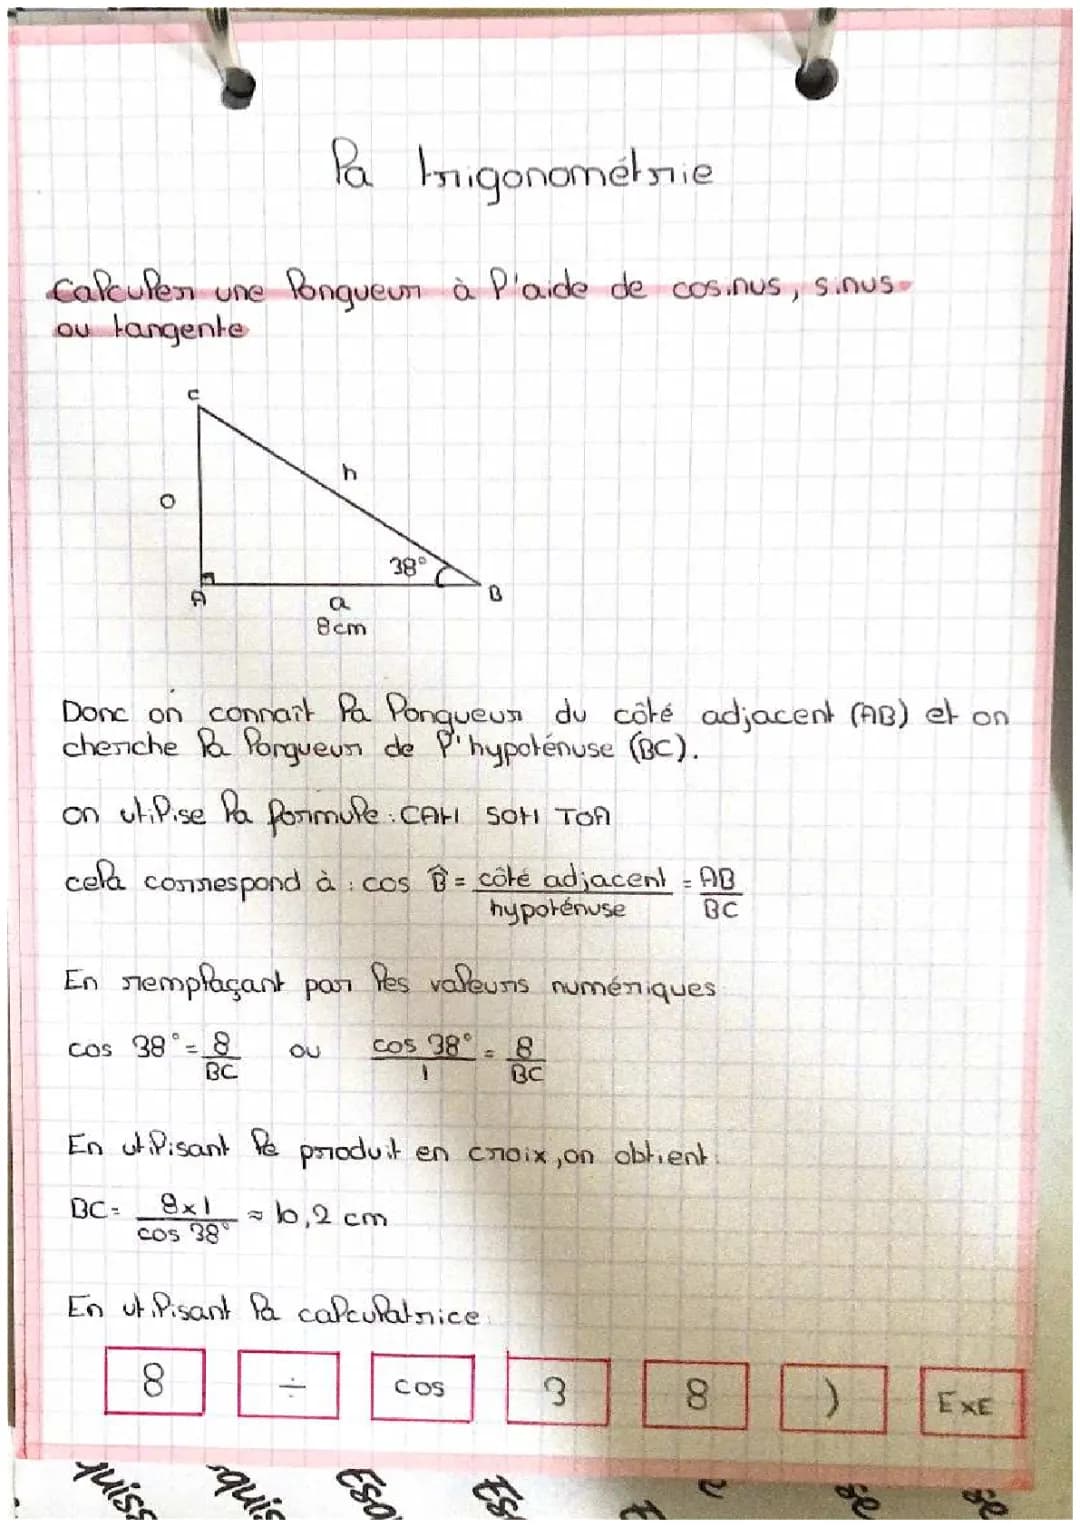 La trigonométrie
Calculer une longueur à l'aide de cosinus, sinus
ou tangente
C
h
O
38°
A
B
a
8cm
Donc on connaît la longueur du côté adjacent (AB) et on
cherche la longueur de l'hypoténuse (BC).
on utilise la formule : CAH SOH TOA
cela correspond à : cos B̂ = côté adjacent / hypoténuse = AB / BC
En remplaçant par les valeurs numériques
cos 38° = 8 / BC ou cos 38° / 1 = 8 / BC
En utilisant le produit en croix, on obtient :
BC = 8x1 / cos 38° ≈ 10,2 cm
En utilisant la calculatrice :
8 ÷ cos 3 8 ) EXE